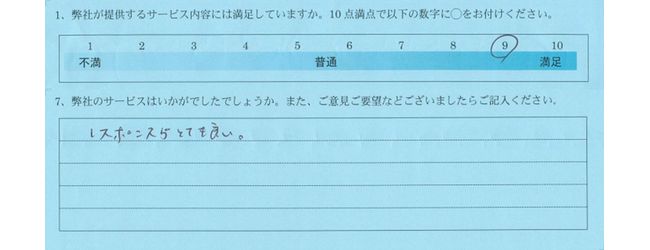 1、弊社が提供するサービス内容には満足していますか。10点満点で以下の数字に○をお付けください。
1 2 3 4 5 6 7 8 9 10
不満 普通 満足
7、弊社のサービスはいかがでしたでしょうか。また、ご意見ご要望などございましたらご記入ください。
レスポンスらとても良い。